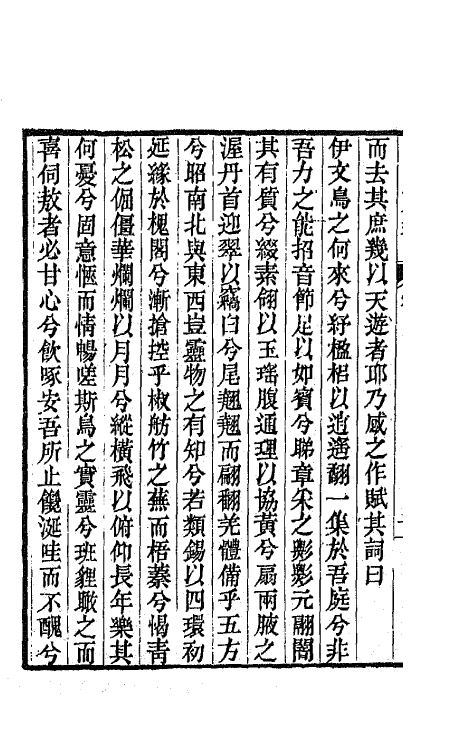 而去其庶幾以天遊者耶乃感之作賦其詞曰
伊文鳥之何來兮紓楹梠以逍遙翻一集於吾庭兮非
吾力之能招音節足以如賓兮睇章采之影影元翮闇
其有質兮綴素翎以玉瑤腹通理以協黃兮扇兩腋之
渥丹首迎翠以竊白兮尾翹翹而翩翻羌體備乎五方
兮昭南北與東西豈靈物之有知兮若類錫以四環初
延緣於槐閣兮漸搶控乎椒舫竹之蕪而梧蓁兮愒青
松之倔僵華爛爛以月月兮縱橫飛以俯仰長年樂其
何憂兮固意愜而情暢嗟斯鳥之實靈兮班貍瞰之而
喜伺敖者必甘心兮飲啄安吾所止饞涎哇而不醜兮